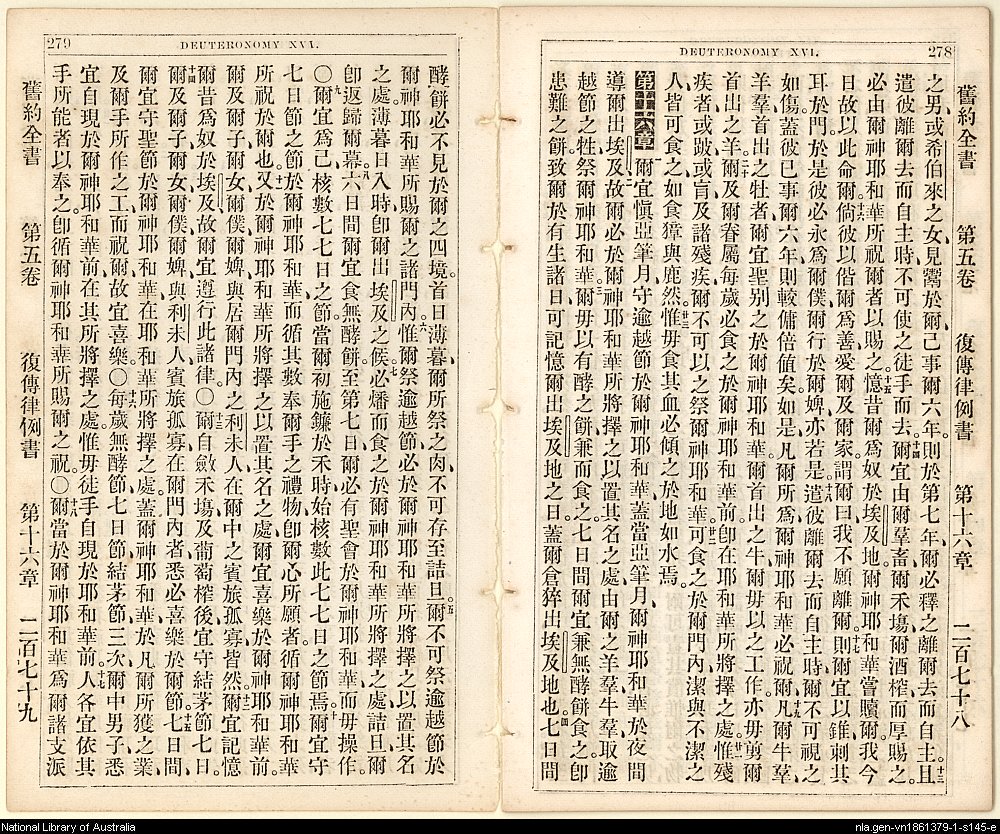 278
DEUTERONOMY XVI.
舊約全書 第五卷 復傳律例書 第十六章 二百七十八
之男、或希伯來之女、見鬻於爾、已事爾六年、則於第七年、爾必釋之離爾去而自主。十三且
遣彼離爾去而自主時、不可使之徒手而去。十四爾宜由爾羣畜爾禾塲爾酒榨而厚賜之。
必由爾神耶和華所祝爾者以賜之。十五憶昔爾爲奴於埃及地、爾神耶和華嘗贖爾、我今
日故以此命爾。十六倘彼以偕爾爲善、愛爾及爾家、謂爾曰、我不願離爾、十七則爾宜以錐刺其
耳於門、於是彼必永爲爾僕、爾行於爾婢、亦若是。十八遣彼離爾去而自主時、爾不可視之
如傷、蓋彼已事爾六年、則較傭倍值矣。如是凡爾所爲、爾神耶和華必祝爾。十九凡爾牛羣
羊羣首出之牡者、爾宜聖別之於爾神耶和華。爾首出之牛、爾毋以之工作、亦毋剪爾
首出之羊。二十爾及爾眷屬、每歲必食之於爾神耶和華前、卽在耶和華所將擇之處。廿一惟殘
疾者、或跛或盲、及諸殘疾、爾不可以之祭爾神耶和華。廿二可食之於爾門內、潔與不潔之
人皆可食之、如食獐與鹿然。廿三惟毋食其血、必傾之於地如水焉。
第十六章 爾宜愼亞筆月、守逾越節於爾神耶和華、蓋當亞筆月、爾神耶和華於夜間
導爾出埃及。二故爾必於爾神耶和華所將擇之以置其名之處、由爾之羊羣牛羣、取逾
越節之牲、祭爾神耶和華。三爾毋以有酵之餅兼而食之。七日間爾宜兼無酵餅食之、卽
患難之餅、致爾於有生諸日、可記憶爾出埃及地之日。蓋爾倉猝出埃及地也。四七日間
279
DEUTERONOMY XVI.
酵餅必不見於爾之四境。首日薄暮、爾所祭之肉、不可存至詰旦。五爾不可祭逾越節於
爾神耶和華所賜爾之諸門內。六惟爾祭逾越節、必於爾神耶和華所將擇之以置其名
之處、薄暮日入時、卽爾出埃及之候。七必燔而食之於爾神耶和華所將擇之處、詰旦、爾
卽返歸爾幕。八六日間爾宜食無酵餅、至第七日、爾必有聖會於爾神耶和華、而毋操作。
〇九爾宜爲己、核數七七日之節、當爾初施鐮於禾時、始核數此七七日之節焉。十爾宜守
七七日節之節於爾神耶和華、而循其數、奉爾手之禮物、卽爾心所願者、循爾神耶和華
所祝於爾也。十一又於爾神耶和華所將擇之以置其名之處、爾宜喜樂於爾神耶和華前。
爾及爾子爾女、爾僕爾婢、與居爾門內之利未人、在爾中之賓旅孤寡皆然。十二爾宜記憶
爾昔爲奴於埃及、故爾宜遵行此諸律。〇十三爾自斂禾塲及葡萄榨後、宜守結茅節七日。
十四爾及爾子爾女、爾僕爾婢、與利未人、賓旅孤寡在爾門內者、悉必喜樂於爾節。十五七日間、
爾宜守聖節於爾神耶和華、在耶和華所將擇之處。蓋爾神耶和華、於凡爾所獲之業、
及爾手所作之工而祝爾、故宜喜樂。〇十六每歲無酵節、七日節、結茅節、三次爾中男子、悉
宜自現於爾神耶和華前、在其所將擇之處。惟毋徒手自現於耶和華前。十七人各宜依其
手所能者以奉之、卽循爾神耶和華所賜爾之祝。〇十八爾當於爾神耶和華爲爾諸支派
舊約全書 第五卷 復傳律例書 第十六章 二百七十九
National Library of Australia
nla.gen-vn1861379-1-s145-e